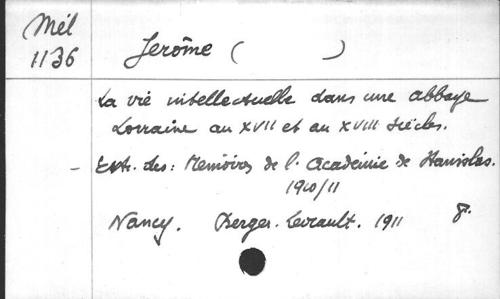 Mél
1136
Jerôme ( )
La vie intellectuelle dans une abbaye
Lorraine au XVII et au XVIII siècles.
- Extr. des : Memoires de l'Académie de Stanislas.
1910/11
Nancy. Berger-Levrault. 1911 8.